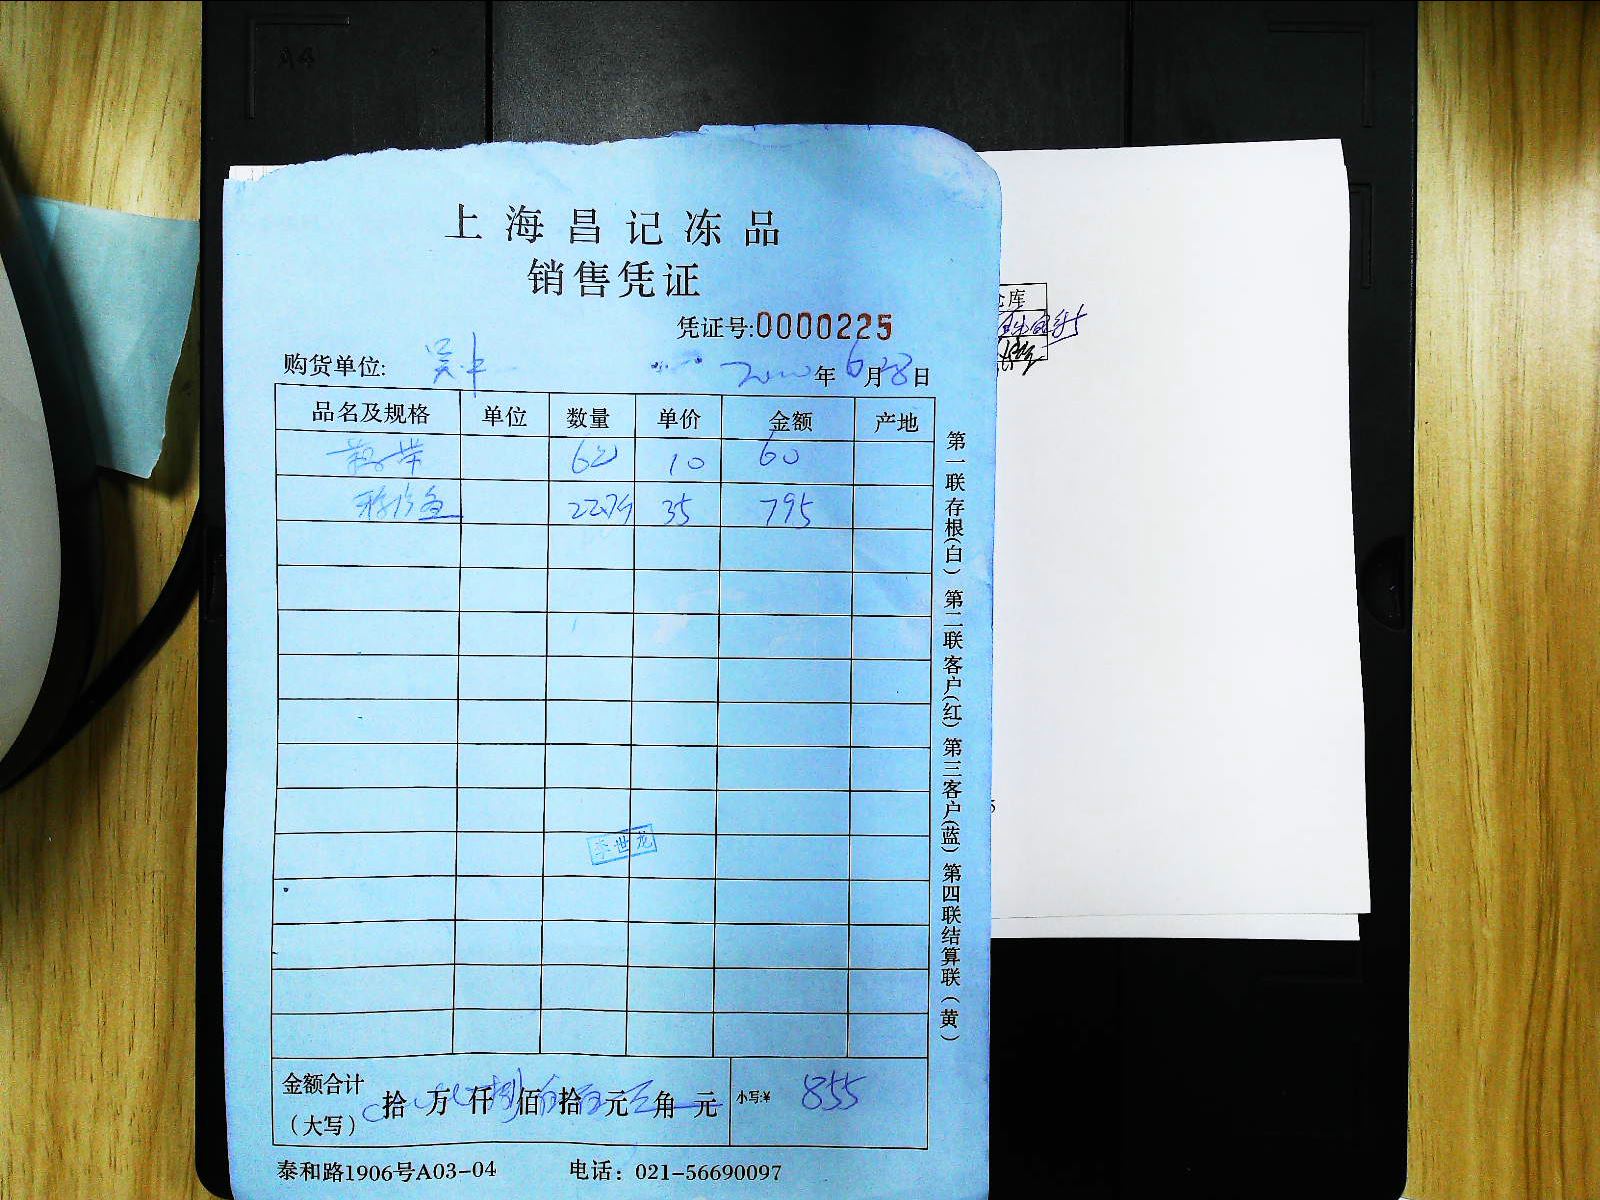 A4
上海昌记冻品
销售凭证
凭证号:0000225
购货单位: 吴中 年6月28日
品名及规格 单位 数量 单价 金额 产地
10 60
35 795
金额合计
(大写)
拾 万 仟 佰 拾 元 角 元 小写:¥ 855
泰和路1906号A03-04 电话：021-56690097
第一联存根(白) 第二联客户(红) 第三客户(蓝) 第四联结算联(黄)
李世龙
仓库